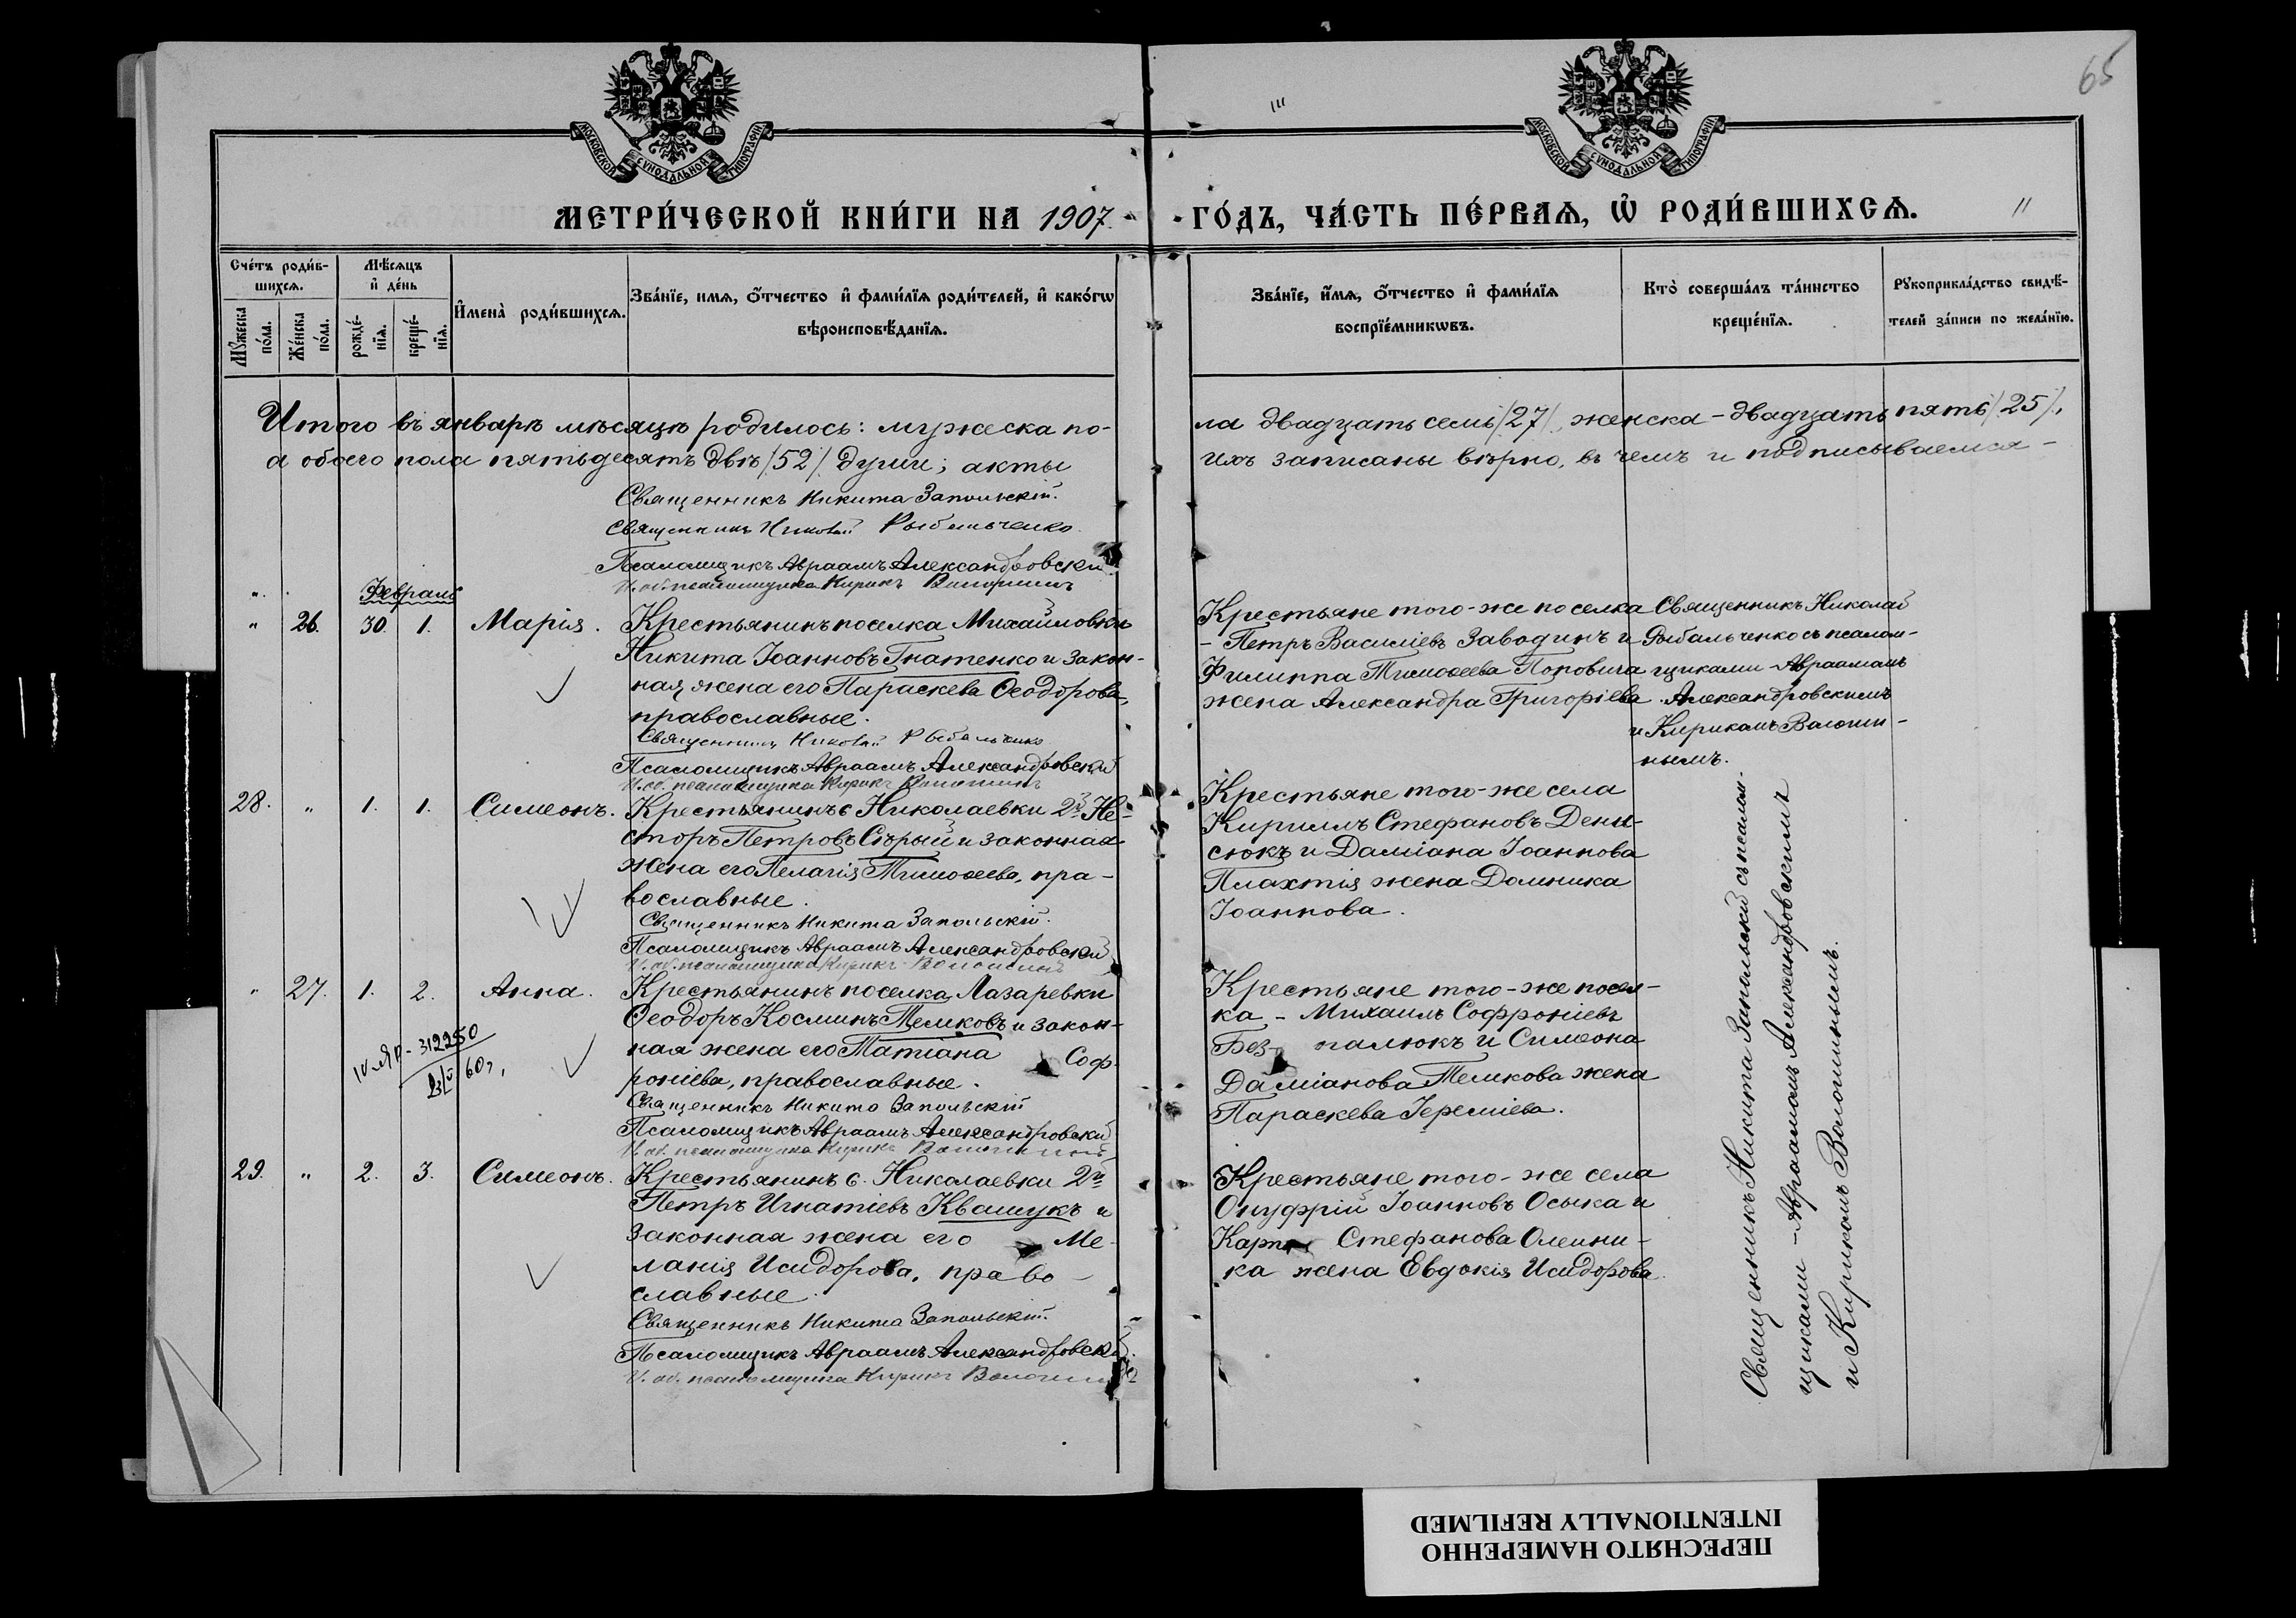 65
МОСКОВСКОЙ СѴНОДАЛЬНОЙ ТИПОГРАФІИ
МОСКОВСКОЙ СѴНОДАЛЬНОЙ ТИПОГРАФІИ
МЕТРИ́ЧЕСКОЙ КНИ́ГИ НА 1907
ГО́ДЪ, ЧА́СТЬ ПЕ́РВАЯ, Ѡ҆ РОДИ́ВШИХСЯ.
Сче́тъ роди́в-
шихся.
Мѣ́сяцъ
и҆ де́нь
Мꙋжеска по́ла.
Же́нска по́ла.
рожде́-
нїя.
креще́-
нїя.
И҆мена̀ роди́вшихся.
Зва́нїе, имя, ѻ҆́тчество и҆ фами́лїя роди́телей, и҆ како́гѡ
вѣроисповѣ́данїя.
Зва́нїе, и҆́мя, ѻ҆́тчество и҆ фами́лїя
воспрїе́мникѡвъ.
Кто̀ соверша́лъ та́инство
креще́нїя.
Рꙋкоприкла́дство свидѣ́-
телей за́писи по жела́нїю.
Итого въ январѣ мѣсяцѣ родилось: мужеска по-
ла двадцать семь /27/, женска – двадцать пять /25/,
а обоего пола пятьдесятъ двѣ /52/ души; акты
ихъ записаны вѣрно, въ чемъ и подписываемся –
Священникъ Никита Запольскій.
Священникъ Николай Рыбальченко
Псаломщикъ Авраамъ Александровскій
И. об. псаломщика Кирикъ Волошинъ
Февраль
" 26. 30. 1. Марія.
Крестьянинъ поселка Михайловки
Никита Іоанновъ Гнатенко и закон-
ная жена его Параскева Ѳеодорова,
православные.
Священникъ Николай Рыбальченко
Псаломщикъ Авраамъ Александровскій
И. об. псаломщика Кирикъ Волошинъ
Крестьяне того-же поселка
– Петръ Василіевъ Заводинъ и
Филиппа Тимоѳеева Поповича
жена Александра Григоріева
Священникъ Николай
Рыбальченко съ псалом-
щиками Авраамомъ
Александровскимъ
и Кирикомъ Волоши-
нымъ.
28. " 1. 1. Симеонъ.
Крестьянинъ с Николаевки 2й Не-
сторъ Петровъ Сѣрый и законная
жена его Пелагія Тимоѳеева, пра-
вославные.
Священникъ Никита Запольскій.
Псаломщикъ Авраамъ Александровскій
И. об. псаломщика Кирикъ Волошинъ
Крестьяне того-же села
Кириллъ Стефановъ Дени-
сюкъ и Даміана Іоаннова
Плахтія жена Домника
Іоаннова.
" 27. 1. 2. Анна.
Крестьянинъ поселка Лазаревки
Ѳеодоръ Косминъ Темковъ и закон-
ная жена его Татіана Соф-
роніева, православные.
Священникъ Никита Запольскій
Псаломщикъ Авраамъ Александровскій
И. об. псаломщика Кирикъ Волошинъ
312250
60г,
Крестьяне того-же посел-
ка – Михаилъ Софроніевъ
Без- палюкъ и Симеона
Даміанова Темкова жена
Параскева Іереміева.
29. " 2. 3. Симеонъ.
Крестьянинъ с. Николаевки 2й
Петръ Игнатіевъ Квашукъ и
законная жена его Ме-
ланія Исидорова, право-
славные.
Священникъ Никита Запольскій.
Псаломщикъ Авраамъ Александровскій.
И. об. псаломщика Кирикъ Волошинъ
Крестьяне того-же села
Онуфрій Іоанновъ Осыка и
Карпа Стефанова Олейни-
ка жена Евдокія Исидорова.
Священникъ Никита Запольскій съ псалом-
щиками – Авраамомъ Александровскимъ
и Кирикомъ Волошинымъ.
ПЕРЕСНЯТО НАМЕРЕННО
INTENTIONALLY REFILMED